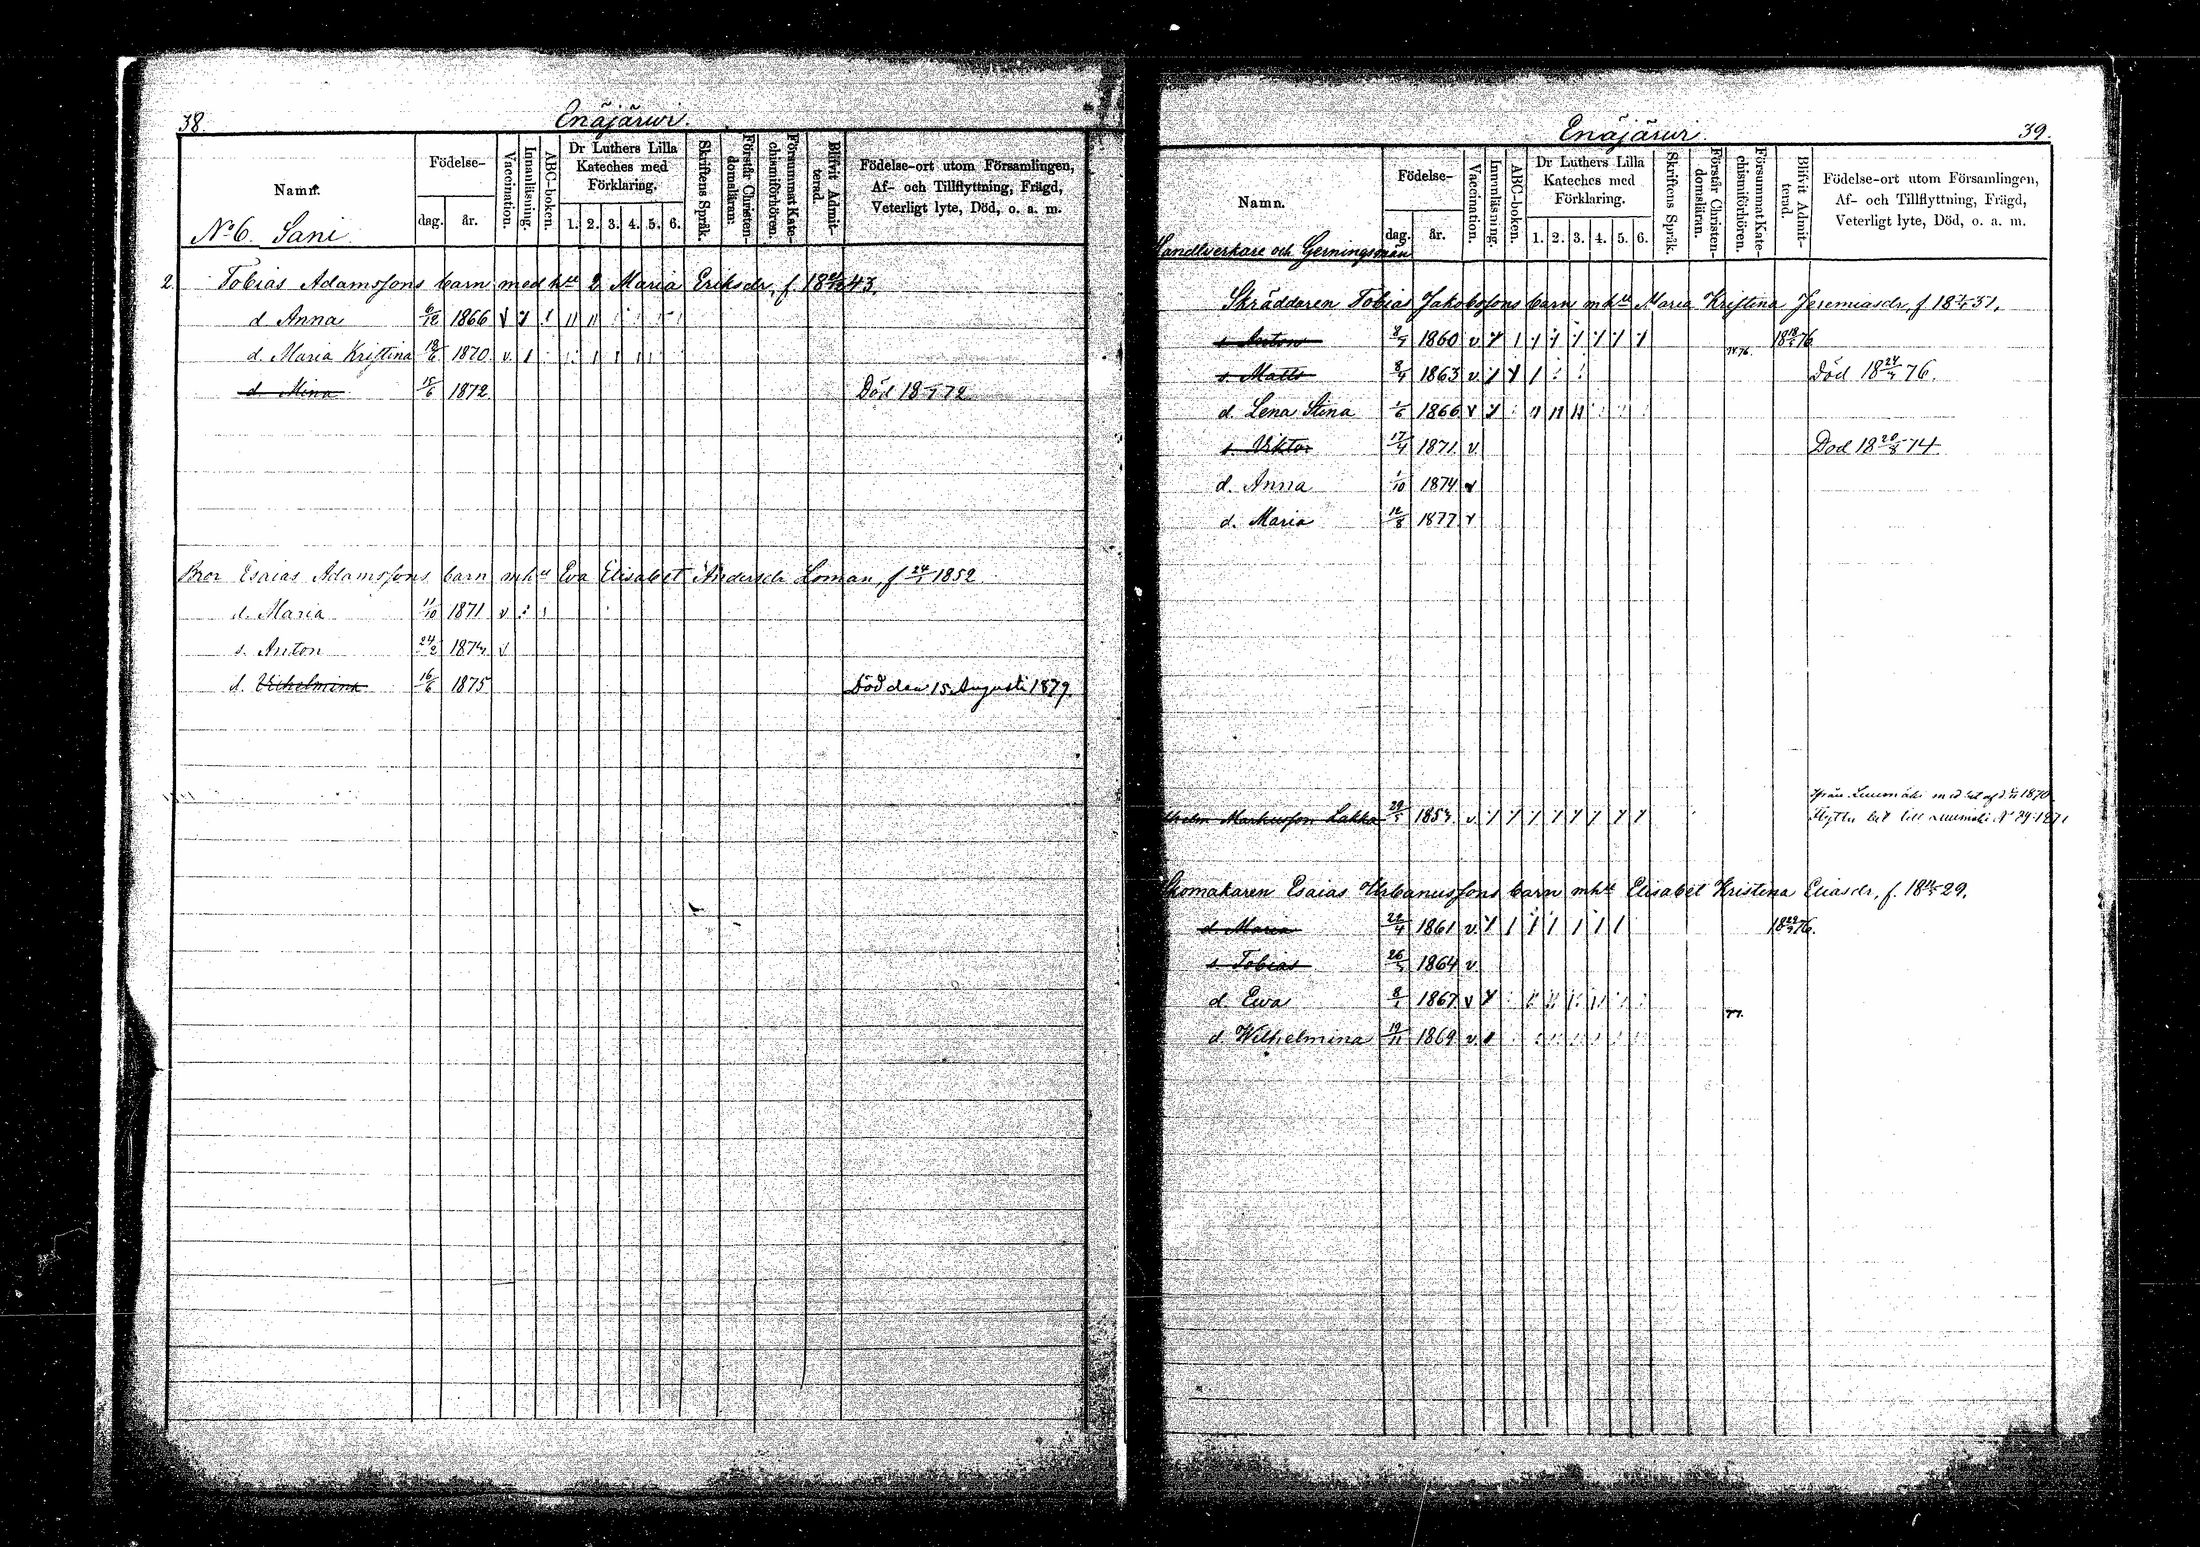 38.
Enäjärwi.
Namn.
Födelse-
dag.
år.
Vaccination.
Innanläsning.
ABC-boken.
Dr Luthers Lilla
Kateches med
Förklaring.
1. 2. 3. 4. 5. 6.
Skriftens Språk.
Förstår Christen-
domsläran.
Försummat Kate-
chismiförhören.
Blifvit Admit-
terad.
Födelse-ort utom Församlingen,
Af- och Tillflyttning, Frägd,
Veterligt lyte, Död, o. a. m.
No 6. Sani
2. Tobias Adamssons barn med hu 2 Maria Eriksdr, f. 43.
d Anna 6/12 1866 v
d. Maria Kristina 18/6 1870 v
d Mina 15/6 1872 Död 72
Bror Esaias Adamssons barn mhu Eva Elisabet Andersdr Loman, f 1852
d. Maria 11/10 1871 v
s. Anton 24/2 187 v
d. Vilhelmina 16/6 1875 Död den 15 Augusti 1879.
Enäjärwi.
39.
Namn.
Födelse-
dag.
år.
Vaccination.
Innanläsning.
ABC-boken.
Dr Luthers Lilla
Kateches med
Förklaring.
1. 2. 3. 4. 5. 6.
Skriftens Språk.
Förstår Christen-
domsläran.
Försummat Kate-
chismiförhören.
Blifvit Admit-
terad.
Födelse-ort utom Församlingen,
Af- och Tillflyttning, Frägd,
Veterligt lyte, Död, o. a. m.
Handtverkare och Gerningsmän
Skräddaren Tobias Jakobssons barn mhu Maria Kristina Jeremiasdr, f 31.
s Anton 1860 v 76
s. Matts 8/4 1863 v. Död 76.
d. Lena Stina 1/6 1866 v
s. Viktor 17/4 1871 v. Död 18 20/8 74
d. Anna 1/10 1874 v
d. Maria 12/8 1877 v
Markusson Lakka 185 v.
från med bet af 1870
Flytta bet till No 24 1871
Skomakaren Esaias Urbanussons barn mhu Elisabet Kristina Eliasdr, f. 29.
d Maria 22/4 1861 v. 76.
s Tobias 1864 v
d. Ewa 1867 v
77.
d. Wilhelmina 19/11 1869 v.